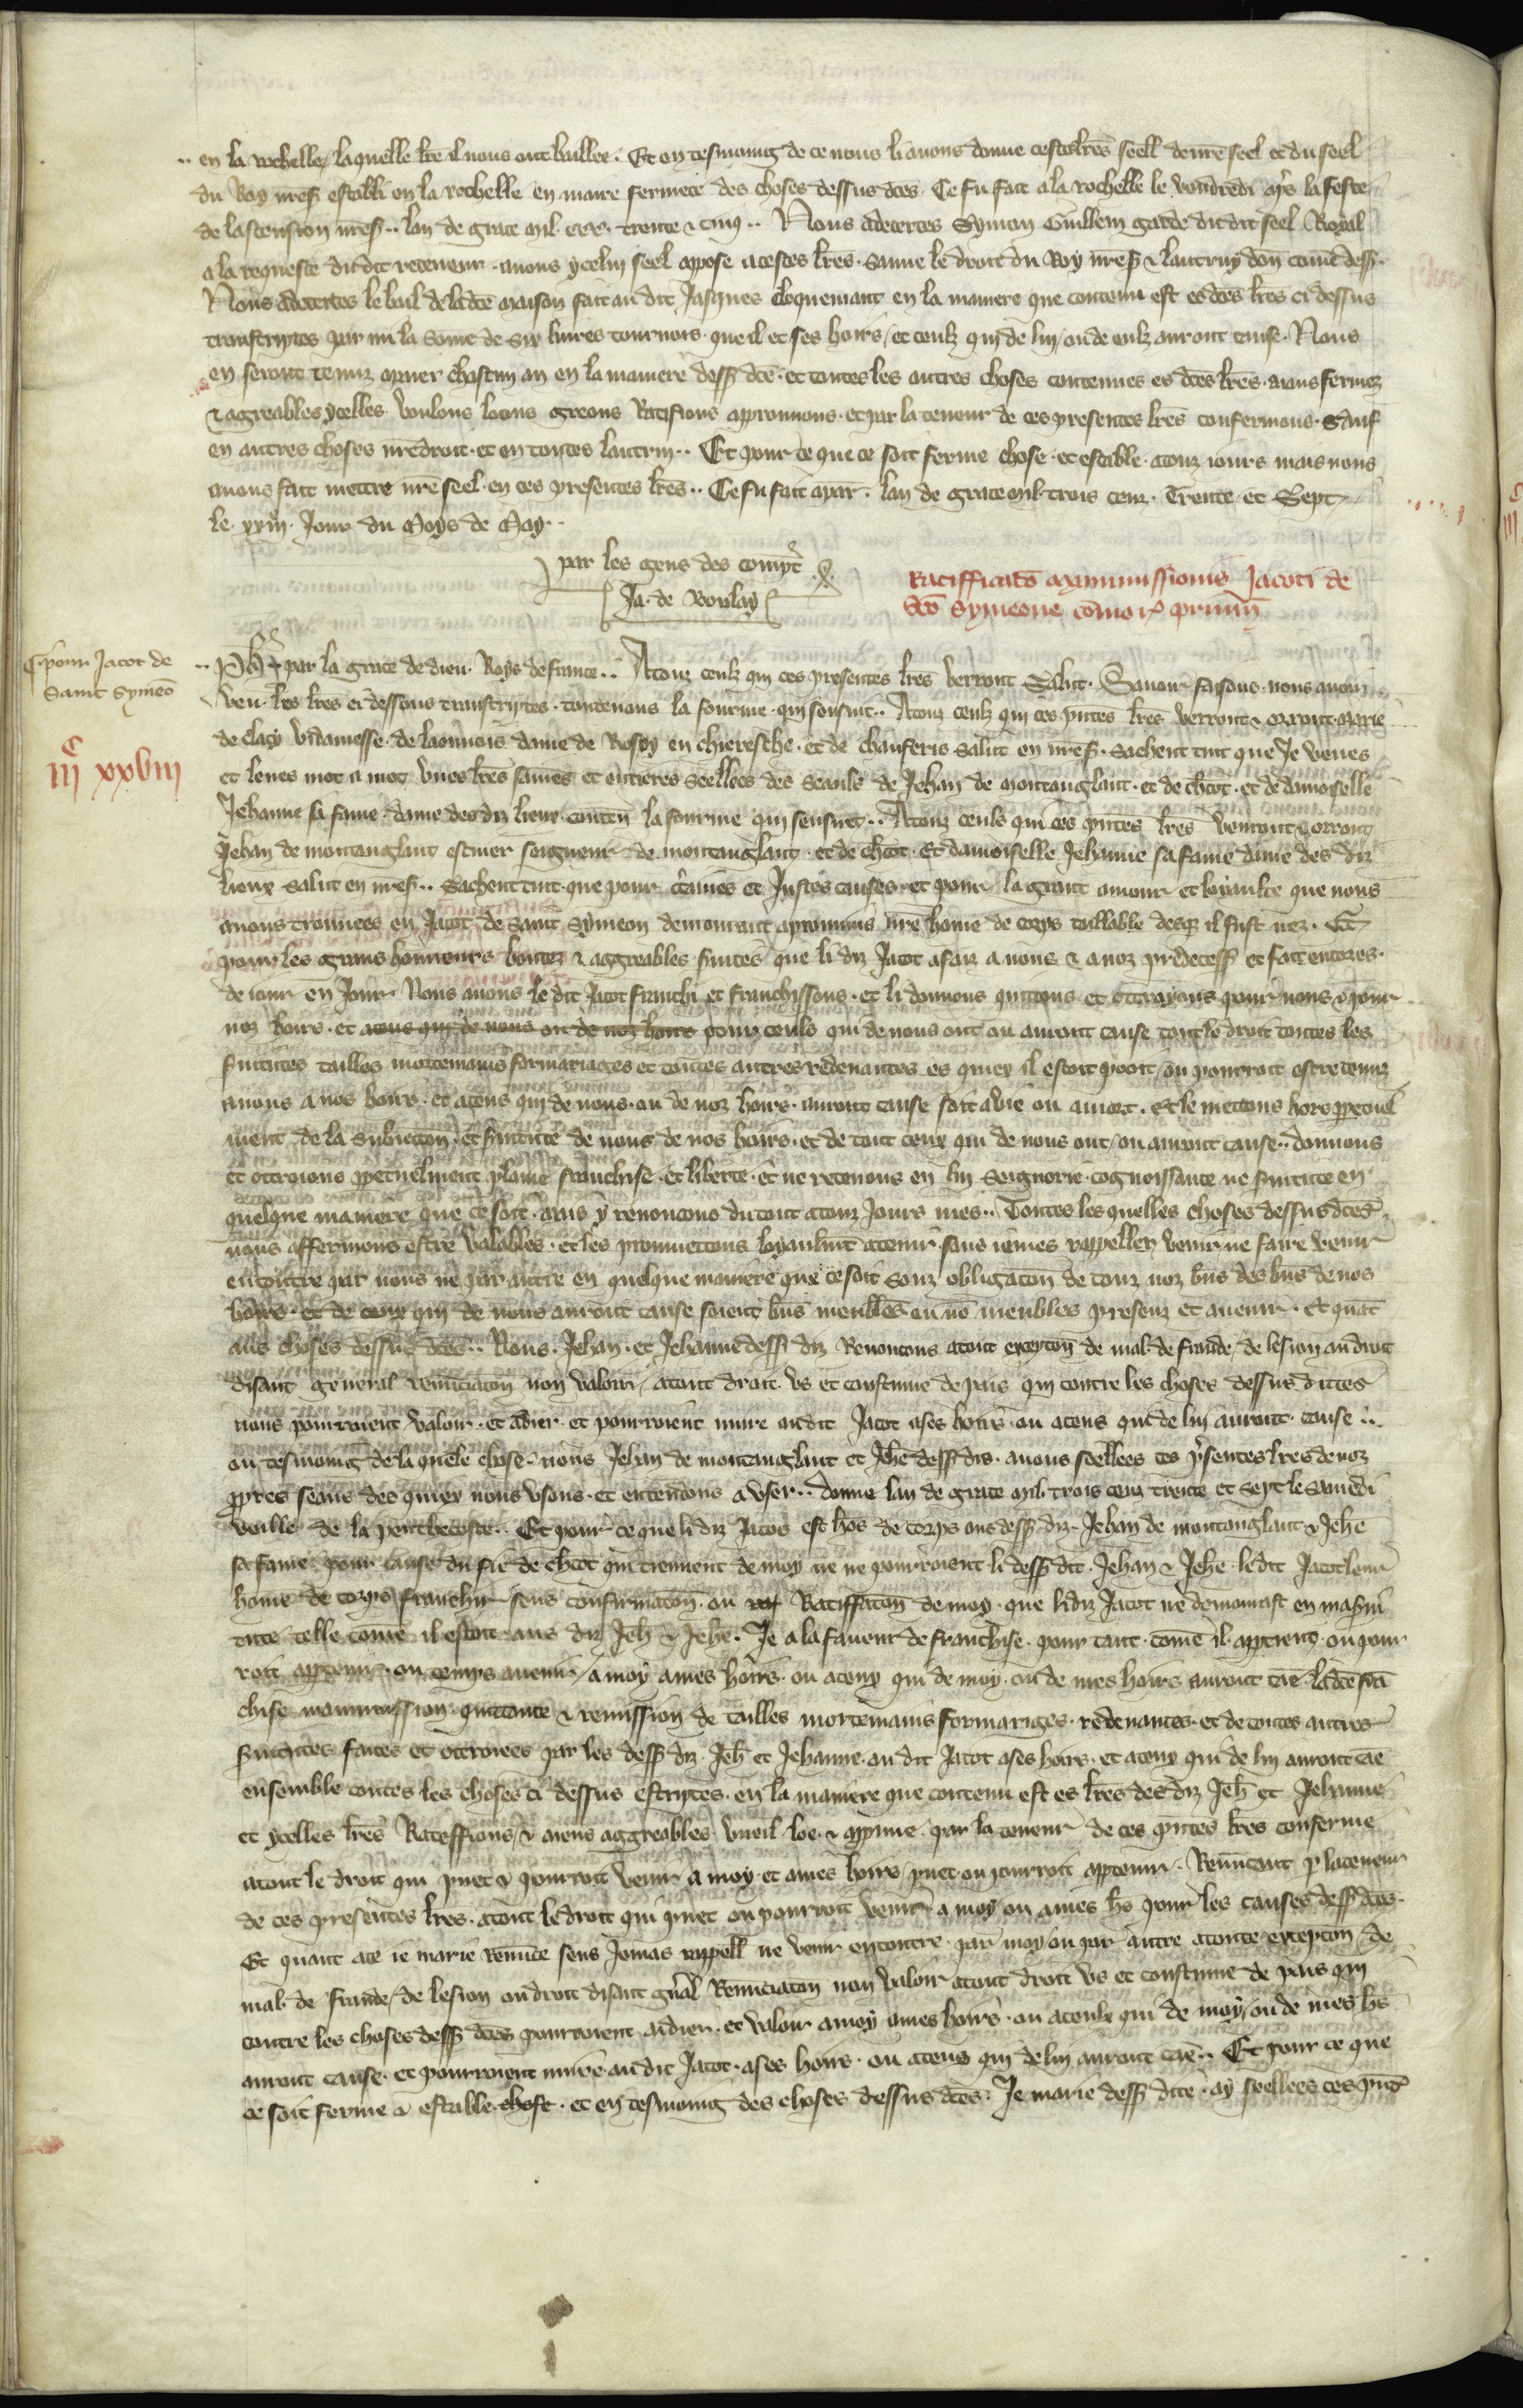 en la rochelle, laquelle lr̃e il nous ont baillee. Et en tesmoing de ce nous li auons donne cestes lr̃es seell de nr̃e seel et du seel
du Roy nr̃es establi en la rochelle en maire fermete des choses dessus dc̃es. Ce fu fait a la rochelle le vendredi apr̃s la feste
de lascension nr̃es. lan de grace mil. ccc. trente & cinq. Nous adecertes Symon Guillem garde du dit seel Royal
a la requeste du dit receueur. auons ycelui seel appose a cestes lr̃es. sauue le droit du Roy nr̃es & lautruy don com̃e dess.
Nous adecertes le bail de la dc̃e maison fait au dit Jaques cloquemant en la maniere que contenu est es dc̃es lr̃es ci dessus
transcriptes par mi la som̃e de six liures tournois. que il et ses hoirs, et ceulz qui de lui, ou de eulz auront cause. Nous
en seront tenuz apaier chascun an en la maniere dess dc̃e. et toutes les autres choses contenues es dc̃es lr̃es. aians fermez
& agreables ycelles voulons loons greons Ratifions approuuons. et par la teneur de ces presentes lr̃es confermons. Sauf
en autres choses nr̃e droit. et en toutes lautrui. Et pour ce que ce soit ferme chose. et estable. a touz iours mais nous
auons fait mettre nr̃e seel. en ces presentes lr̃es. Ce fu fait a par. lan de grace mil trois cenz. Trente et Sept
le. xxiii. Jour du Moys de May.
par les gens des compt̃
Ja. de Boulay
Ratifficacõ manumissionis Jacoti de
Sc̃o Symeone
pour Jacot de
Saint Symeõ
iii^c xxviii
Ph̃ par la grace de dieu. Roys de france. A touz ceulz qui ces presentes lr̃es verront Salut. Sauoir faisons. nous auoir
veu. les lr̃es ci dessous transcriptes. contenans la fourme. qui sensuit. A touz ceulz qui ces pñtes lr̃es verront & orront. Marie
de clacy vidamesse. de laonnois dame de Rosoy en thieresche. et de chauferis salut en nr̃es. Sachent tuit que Je veues
et leues mot a mot vnes lr̃es saines et entieres seellees des seaulx de Jehan de montanglant. et de ch̃ot. et de damoiselle
Jehanne sa fame. dame des diz lieux. conten̄ la fourme qui sensuit. A touz ceuls qui ces pñtes lr̃es verront & orront
Jehan de montanglant escuier seigneur de montanglant. et de ch̃ot. Et damoiselle Jehanne sa fame dame des diz
lieux salut en nr̃es. Sachent tuit. que pour c̃taines et Justes causes. et pour la grant amour et loyaulte que nous
auons trouuees en Jacot de Saint Symeon demourant a prouuins nr̃e hom̃e de corps taillable desq̃ il fust nez. Et
pour les grans honneurs bontez & aggreables seruices que li diz Jacot a faiz a nous & a noz p̃decess. et fait encores.
de iour en Jour. Nous auons le dit Jacot franchi et franchissons. et li donnons quittons et ottroyons pour nous & pour
noz hoirs. et a ceus qui de nous ou de noz hoirs pour ceuls qui de nous ont ou auront cause tout le droit toutes les
seruitutes tailles mortemains formariages et toutes autres redeuances es quiex il estoit pooit, ou pourroit estre tenuz
a nous a nos hoirs. et a ceus qui de nous. ou de noz hoirs. auront cause soit a vie ou a mort. et le mettons hors ppetuel
ment de la subiection. et seruitute de nous de nos hoirs. et de tout ceux qui de nous ont, ou auront cause. donnons
et ottroions ppetuelment plaine franchise. et liberte. et ne retenons en lui Seignorie. cognoissance ne seruitute en
quelque maniere que ce soit. mais y renoncons du tout a touz Jours mes. Toutes les quelles choses dessus dc̃es
nous affermons estre valables. et les promettons loyaulm̃t a tenir. sans iames rappeller venir ne faire venir
encontre par nous ne par autre en quelque maniere que ce soit Souz obligacon de touz noz bñs des bñs de nos
hoirs. et de ceux qui de nous auront cause soient bñs meubles ou nõ meubles presenz et auenir. Et quãt
aus choses dessus dc̃es. Nous. Jehan. et Jehanne dess diz Renoncons a tout excepcon de mal de fraude, de lesion au droit
disant general renunciacon non valoir, a tout droit. vs et coustume de pais qui contre les choses dessus dittes
nous pourroient valoir. et aidier. et pourroient nuire au dit Jacot a ses hoirs. ou a ceus qui de lui auront. cause.
ou tesmoing de la quele chose. nous Jehan de montanglant et Jeh̃e dess dis. auons seellees ces p̃sentes lr̃es de noz
ppres seaus des quiex nous vsons. et entendons a vser. donne lan de grace mil. trois cenz trente et sept le samedi
veille de la penthecoste. Et pour ce que li diz Jacot est hõs de corps aus dess diz Jehan de montanglant & Jeh̃e
sa fame pour cause du fie de ch̃ot qui tiennent de moy ne ne pourroient li dess dit. Jehan & Jeh̃e. le dit Jacot leur
hom̃e de corps franchir sens confirmacon. ou Ratiffacon de moy. que li diz Jacot ne demourast en ma serui
tute telle com̃e il estoit aus diz Jeh̃ & Jeh̃e. Je a la faueur de franchise. pour tant. com̃e il apptient ou pour
roit apptenir. ou temps auenir, a moy a mes hoirs. ou a ceux qui de moy. ou de mes hoirs auront cãe la dc̃e frã
chise manumission. quittance & remission de tailles mortemains formariges. redeuances. et de toutes autres
seruitutes faites et ottroiees par les dess diz. Jeh̃ et Jehanne. au dit Jacot a ses hoirs. et a ceux qui de lui auront cãe
ensemble toutes les choses ci dessus escriptes. en la maniere que contenu est es lr̃es des diz Jeh̃ et Jehanne
et ycelles lr̃es Rateffions, & aiens aggreables vueil loe. & appreuue. par la teneur de ces pñtes lr̃es conferme
a tout le droit qui puet & pourroit venir a moy et a mes hoirs, puet. ou pourroit apptenir. Renuncant p la teneur
de ces presentes lr̃es. a tout le droit qui puet ou pourroit venir a moy ou a mes hs pour les causes dess dc̃es.
Et quant a ce ie marie Renunce sens Jamais rappell ne venir encontre. par moy ou par autre a toute excepcon, de
mal. de fraude, de lesion ou droit disant gñal Renunciacon non valoir a tout droit vs et coustume de pais qui
contre les choses dess dc̃es pourroient aidier. et valoir a moy a mes hoirs. ou a ceulx qui de moy, ou de mes hs
auront cause. et pourroient nuire au dit Jacot. a ses hoirs. ou a ceus qui de lui auront cãe. Et pour ce que
ce soit ferme & estable chose. et en tesmoing des choses dessus dc̃es. Je marie dess dite. ay seellees ces pñtes